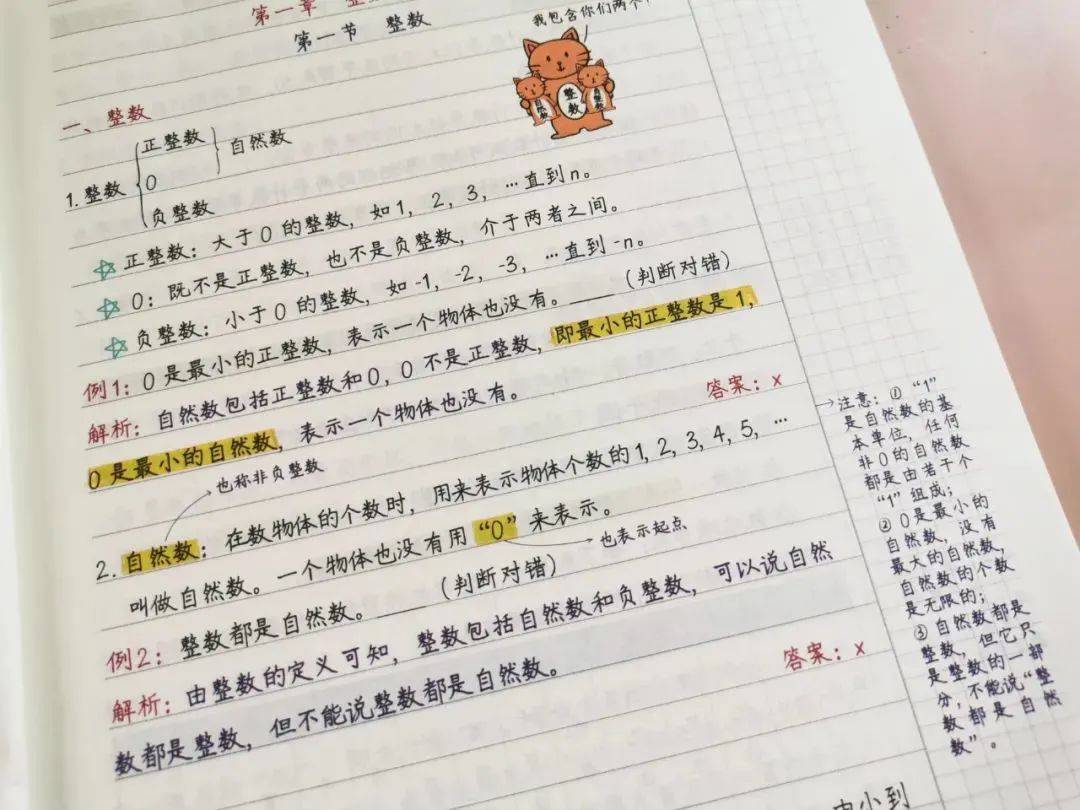 第一章 整
第一节 整数
我包含你们两个
自然数
整数
自然数
一、整数
1. 整数
正整数
0
负整数
自然数
正整数：大于0的整数，如1，2，3，…直到n。
0：既不是正整数，也不是负整数，介于两者之间。
负整数：小于0的整数，如-1，-2，-3，…直到-n。
例1：0是最小的正整数，表示一个物体也没有。____（判断对错）
解析：自然数包括正整数和0，0不是正整数，即最小的正整数是1，
0是最小的自然数，表示一个物体也没有。
答案：×
也称非负整数
2. 自然数：在数物体的个数时，用来表示物体个数的1，2，3，4，5，…
叫做自然数。一个物体也没有用“0”来表示。
也表示起点
例2：整数都是自然数。____（判断对错）
解析：由整数的定义可知，整数包括自然数和负整数，可以说自然
数都是整数，但不能说整数都是自然数。
答案：×
→注意：①“1”
是自然数的基
本单位，任何
非0的自然数
都是由若干个
“1”组成；
②0是最小的
自然数，没有
最大的自然数，
自然数的个数
是无限的；
③自然数都是
整数，但它只
是整数的一部
分，不能说“整
数都是自然
数”。
由小到